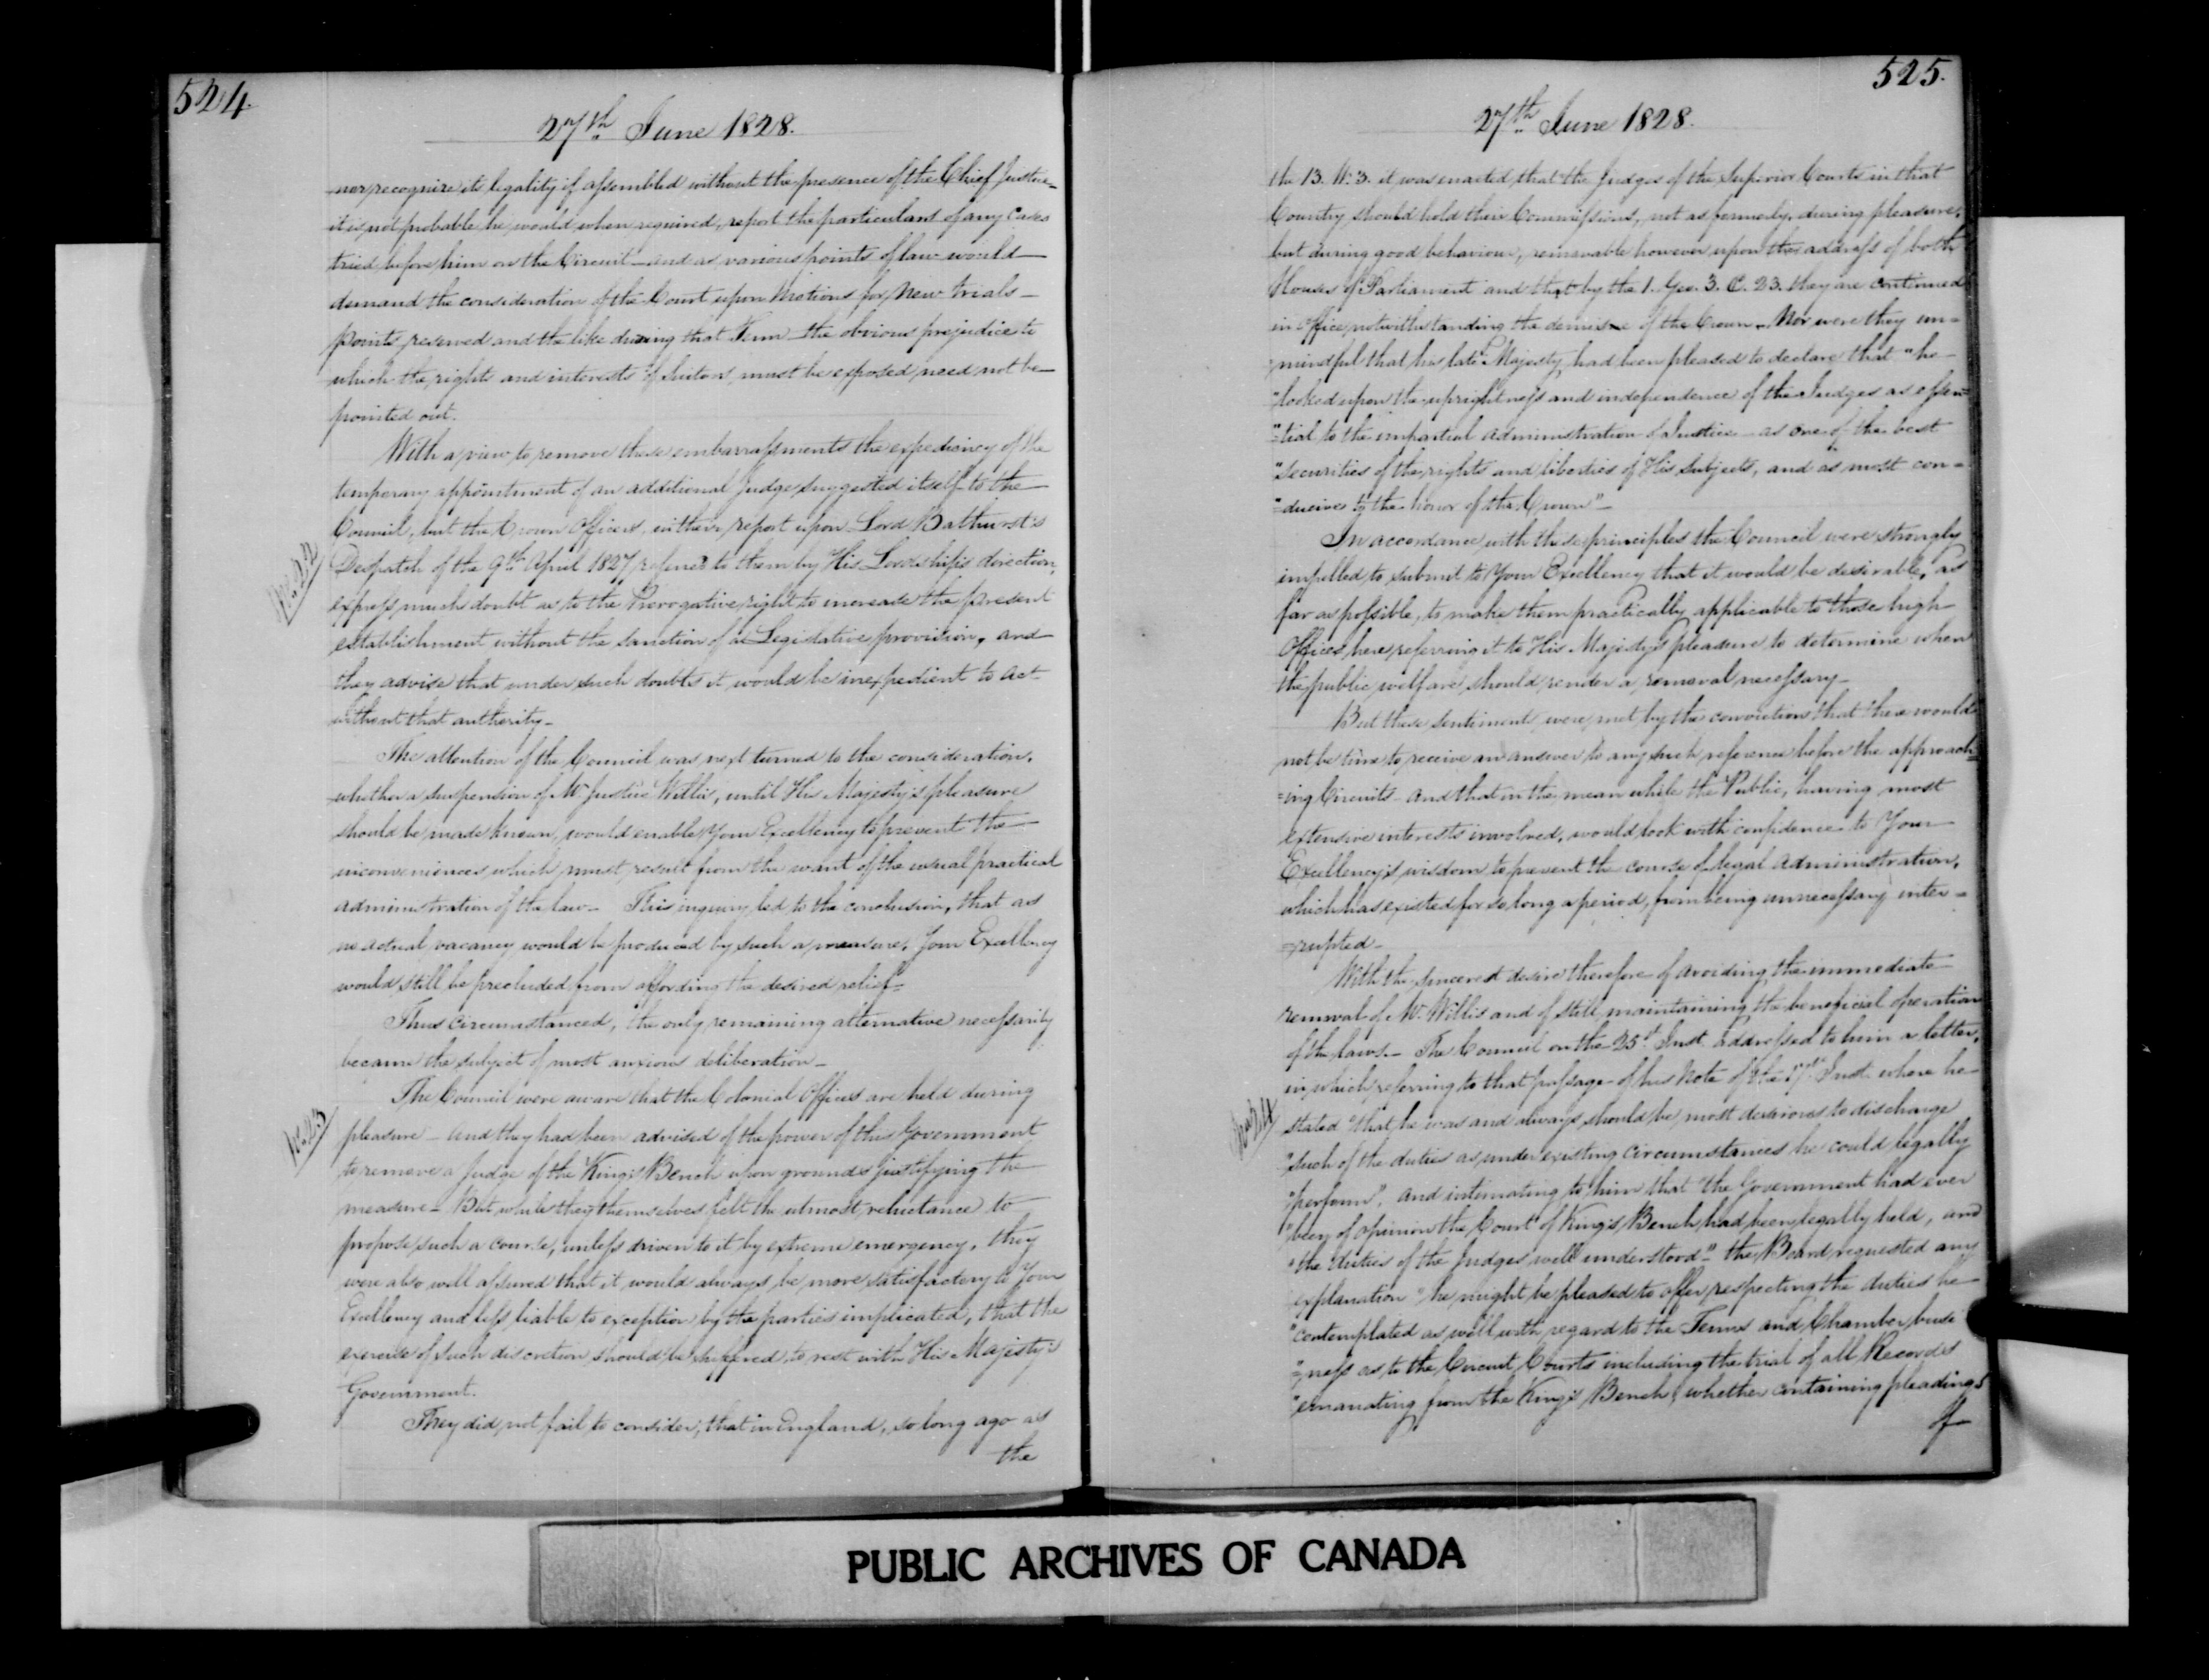 524.
27th June 1828.
nor recognize its legality if assembled without the presence of the Chief Justice =
it is not probable he would when required, report the particulars of any Cases
tried before him on the Circuit — and as various points of law would —
demand the consideration of the Court upon Motions for New trials —
points reserved and the like during that Term — the obvious prejudice to
which the rights and interests of Suitors must be exposed need not be —
pointed out.
With a view to remove these embarrassments the expediency of the
temporary appointment of an additional judge suggested itself to the
Council, but the Crown Officers, in their report upon Lord Bathurst's
No. 22
Despatch of the 9th April 1827 referred to them by His Lordship's direction,
express much doubt as to the Prerogative right to increase the present
establishment without the sanction of a Legislative provision, and
they advise that under such doubts it would be inexpedient to act
without that authority —
The attention of the Council was next turned to the consideration,
whether a suspension of Mr Justice Willis, until His Majesty's pleasure
should be made known, would enable Your Excellency to prevent the
inconveniences which must result from the want of the usual practical
administration of the law — This inquiry led to the conclusion, that as
no actual vacancy would be produced by such a measure, Your Excellency
would still be precluded from affording the desired relief =
Thus circumstanced, the only remaining alternative necessarily
became the subject of most anxious deliberation —
The Council were aware that the Colonial Offices are held during
No. 23
pleasure — and they had been advised of the power of this Government
to remove a Judge of the King's Bench upon grounds justifying the
measure — But while they themselves felt the utmost reluctance to
propose such a course, unless driven to it by extreme emergency, they
were also well assured that it would always be more satisfactory to Your
Excellency and less liable to exception by the parties implicated, that the
exercise of such discretion should be suffered to rest with His Majesty's
Government.
They did not fail to consider, that in England, so long ago as
the
525.
27th June 1828.
the 13. W. 3. it was enacted that the Judges of the Superior Courts in that
Country should hold their Commissions, not as formerly, during pleasure,
but during good behaviour, removable however upon the address of both
Houses of Parliament and that by the 1. Geo. 3. C. 23. they are continued
in Office notwithstanding the demise of the Crown — Nor were they un=
=mindful that his late Majesty had been pleased to declare that "he
"looked upon the uprightness and independence of the Judges as essen=
"=tial to the impartial administration of Justice — as one of the best
"securities of the rights and liberties of His Subjects, and as most con=
"=ducive to the honor of the Crown" —
In accordance with these principles the Council were strongly
impelled to submit to Your Excellency that it would be desirable, as
far as possible, to make them practically applicable to those high
Offices here referring it to His Majesty's pleasure to determine when
the public welfare should render a removal necessary —
But these sentiments were met by the conviction that there would
not be time to receive an answer to any such reference before the approach=
=ing Circuits — and that in the mean while the Public, having most
extensive interests involved, would look with confidence to Your
Excellency's wisdom to prevent the course of legal administration,
which has existed for so long a period, from being unnecessary inter=
=rupted —
With the sincerest desire therefore of avoiding the immediate
removal of Mr Willis and of still maintaining the beneficial operation
of the laws — The Council on the 25th Inst. addressed to him a letter,
in which referring to that passage of his Note of the 17th Inst. where he
No. 24
stated "that he was and always should be, most desirous to discharge
"such of the duties as under existing circumstances he could legally
"perform". and intimating to him that "the Government had ever
"been of opinion the Court of King's Bench had been legally held, and
"the duties of the Judges well understood" — the Board requested any
explanation "he might be pleased to offer respecting the duties he
"contemplated as well with regard to the Terms and Chamber busi
"=ness as to the Circuit Courts including the trial of all Records
"emanating from the King's Bench, whether containing pleadings
of
PUBLIC ARCHIVES OF CANADA